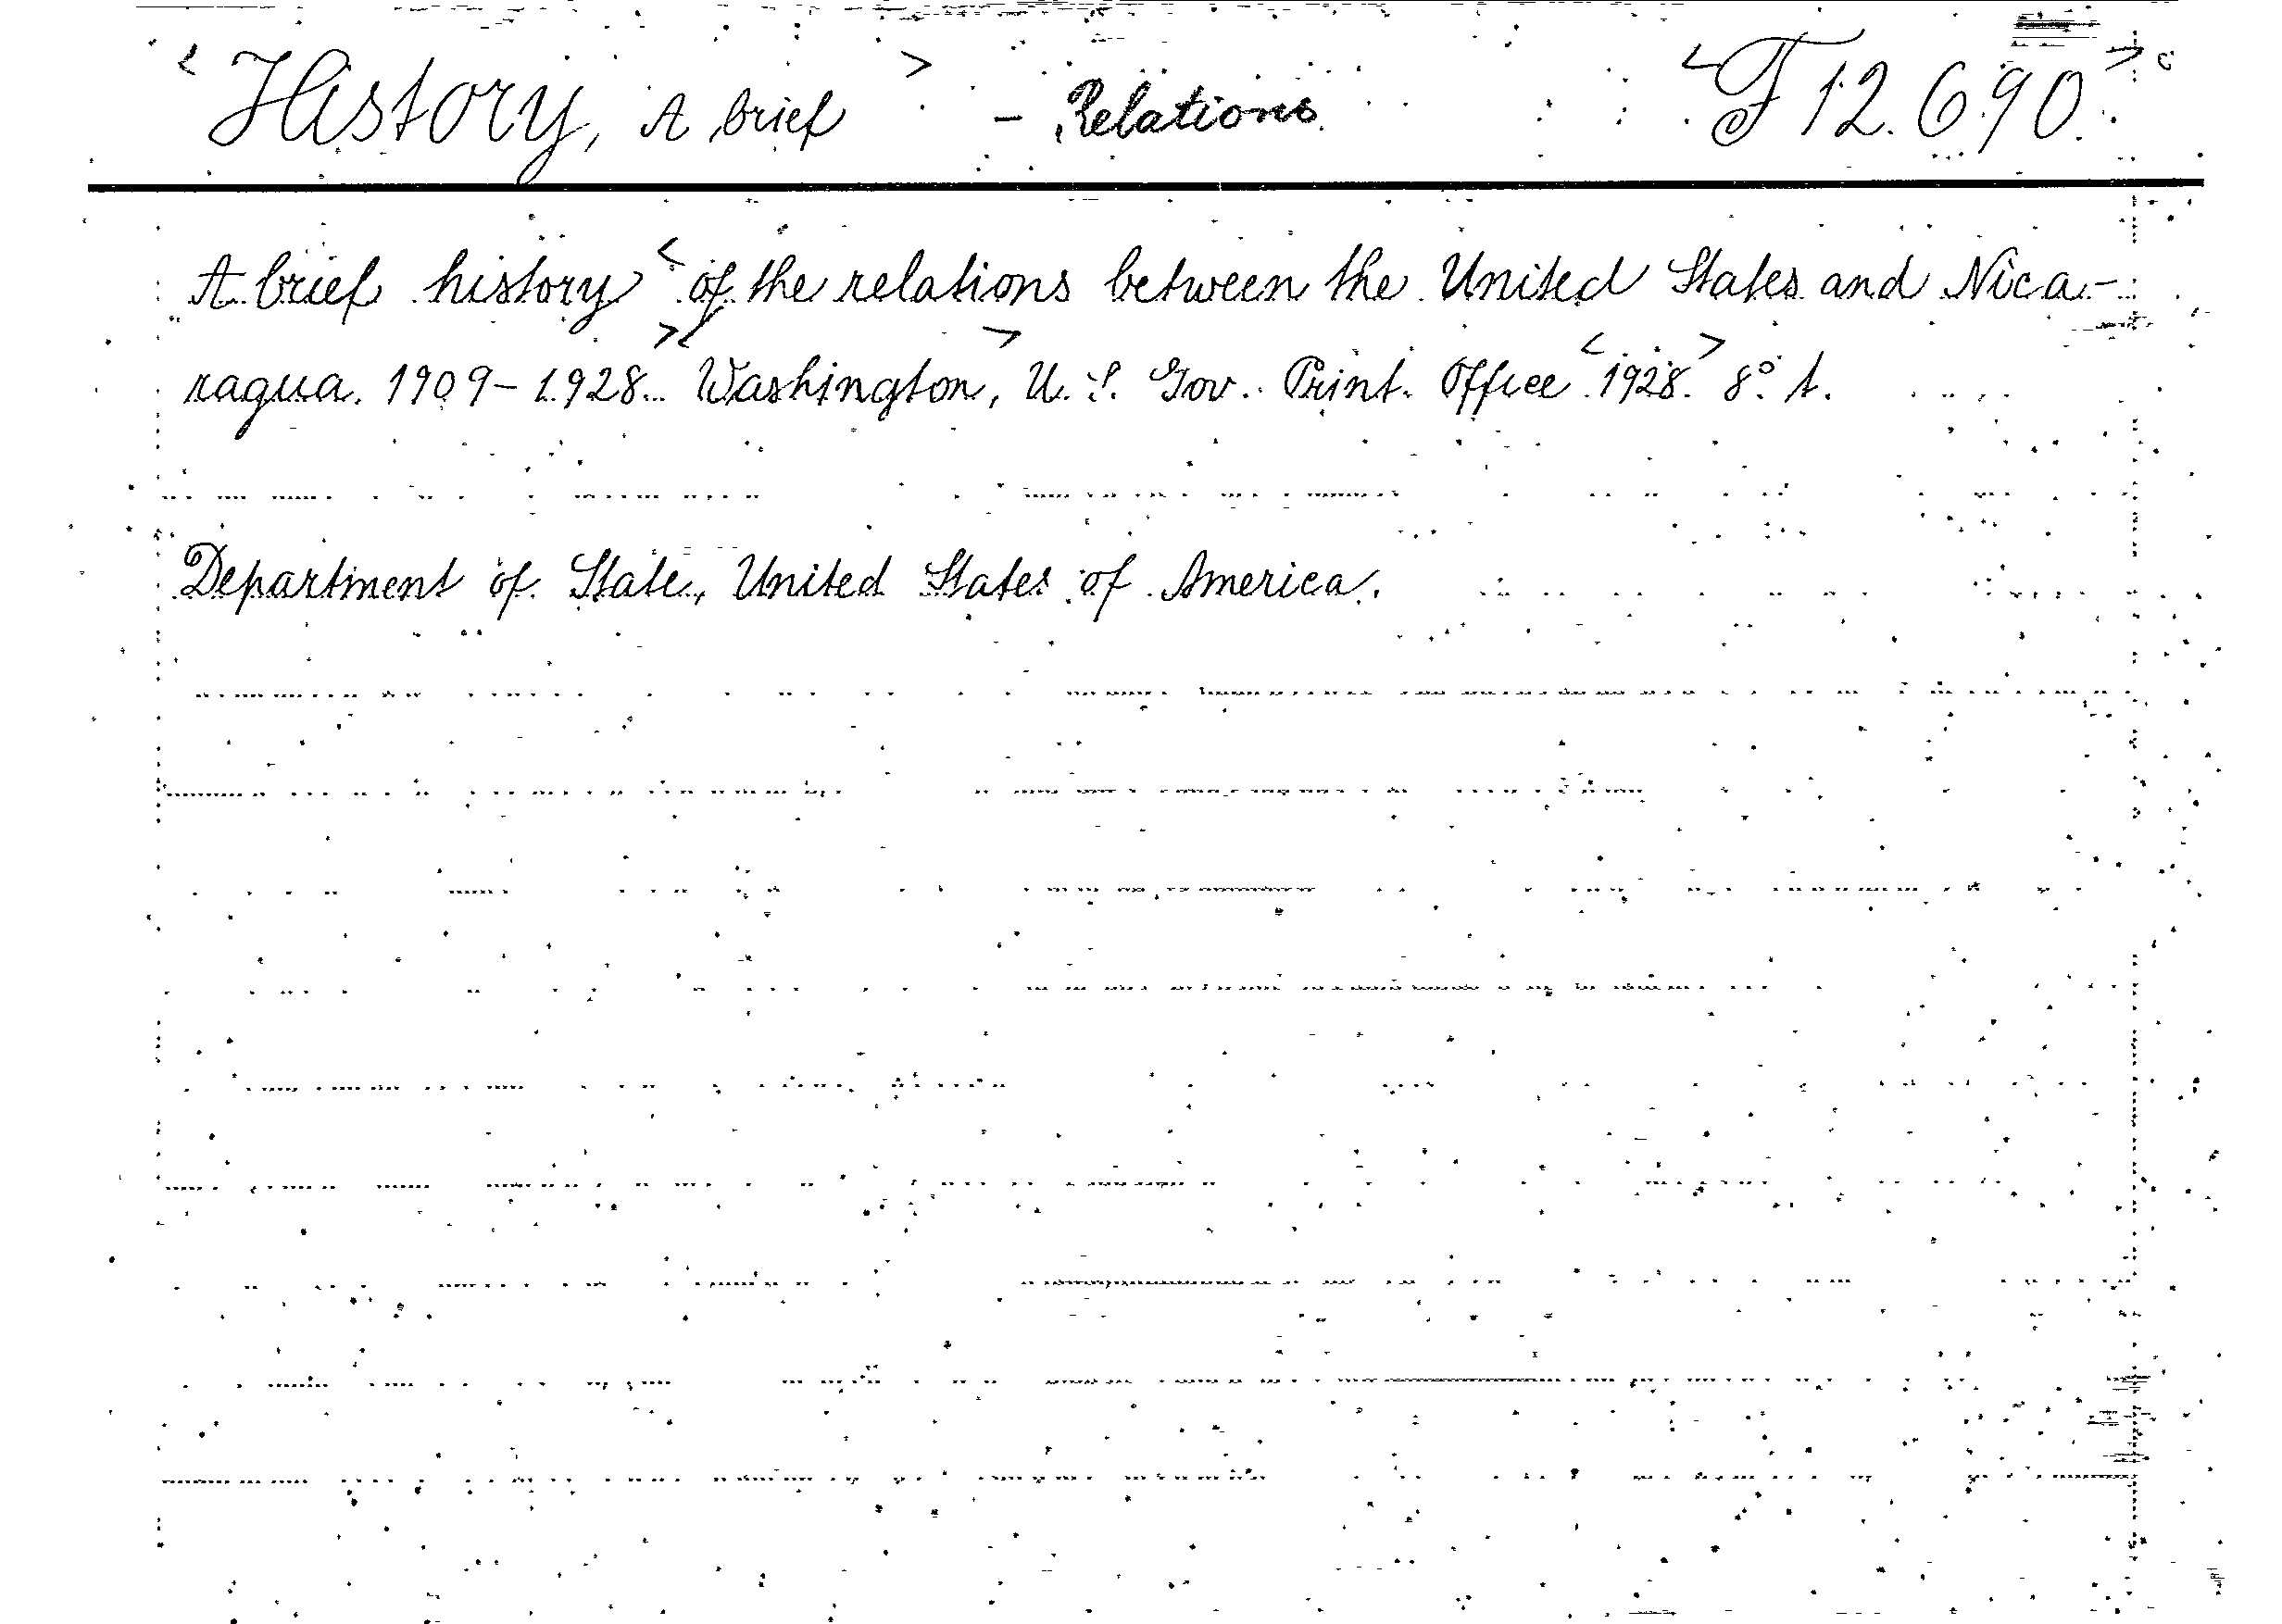 <History, A brief> - Relations <F 12.690>
A brief history <of the relations between the United States and Nica-
ragua. 1909-1928.> <Washington>, U. S. Gov. Print. Office <1928.> 8° t.
Department of State, United States of America.